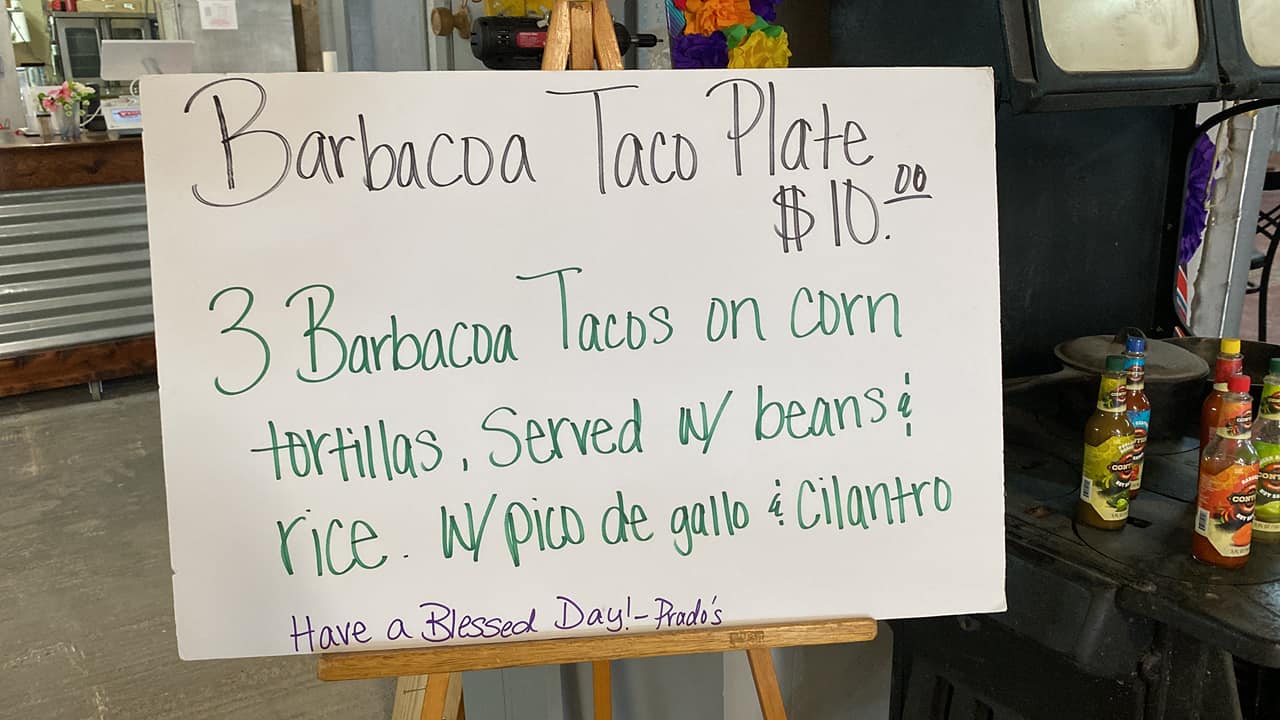 Barbacoa Taco Plate
$10.00
3 Barbacoa Tacos on corn
tortillas, Served w/ beans &
rice. w/ pico de gallo & Cilantro
Have a Blessed Day! - Prado's